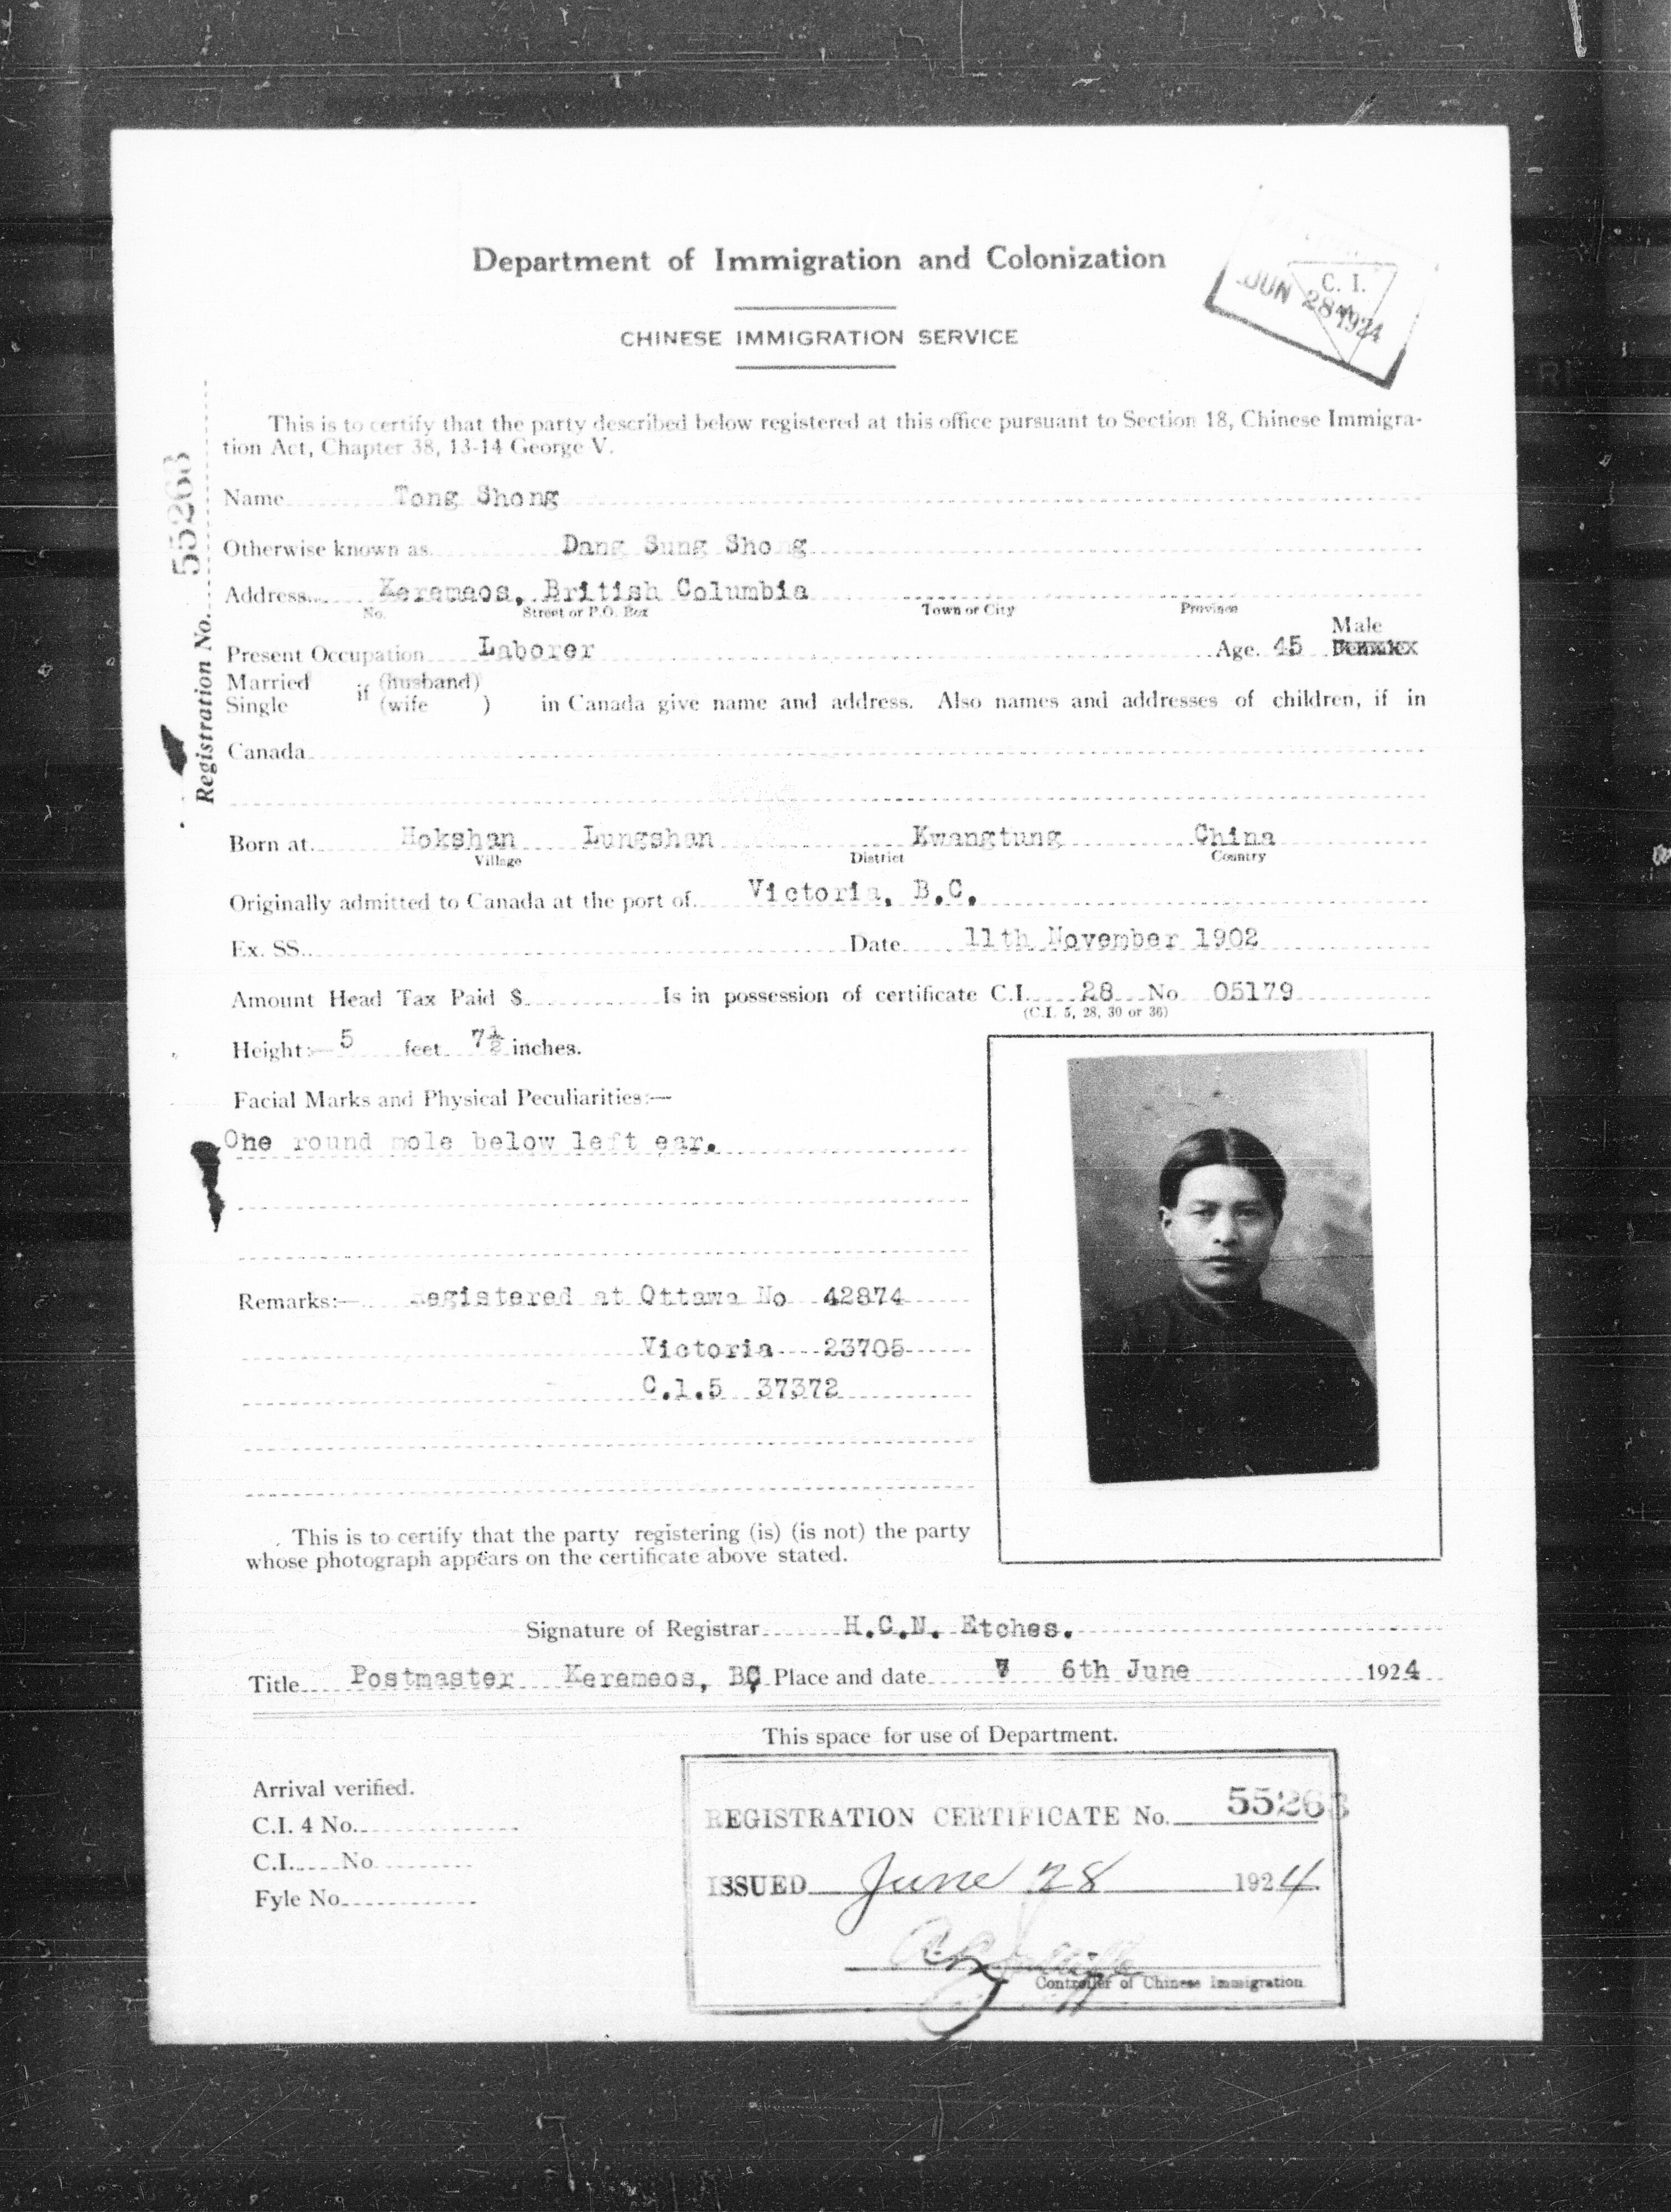 Department of Immigration and Colonization
CHINESE IMMIGRATION SERVICE
C. I.
JUN 28 1924
Registration No. 55263
This is to certify that the party described below registered at this office pursuant to Section 18, Chinese Immigra-
tion Act, Chapter 38, 13-14 George V.
Name Tong Shong
Otherwise known as Dang Sung Shong
Address Keremeos, British Columbia
No. Street or P.O. Box Town or City Province
Male
Present Occupation Laborer Age 45 Female
Married if (husband)
Single (wife ) in Canada give name and address. Also names and addresses of children, if in
Canada
Born at Hokshan Lungshan Kwangtung China
Village District Country
Originally admitted to Canada at the port of Victoria, B.C.
Ex. SS. Date 11th November 1902
Amount Head Tax Paid $ Is in possession of certificate C.I. 28 No 05179
(C.I. 5, 28, 30 or 36)
Height:— 5 feet 7½ inches.
Facial Marks and Physical Peculiarities:—
One round mole below left ear.
Remarks:— Registered at Ottawa No 42874
Victoria 23705
C.1.5 37372
This is to certify that the party registering (is) (is not) the party
whose photograph appears on the certificate above stated.
Signature of Registrar H.C.N. Etches.
Title Postmaster Keremeos, BC Place and date 6th June 1924
This space for use of Department.
Arrival verified.
C.I. 4 No.
C.I. No
Fyle No.
REGISTRATION CERTIFICATE No. 55263
ISSUED June 28 1924
Controller of Chinese Immigration